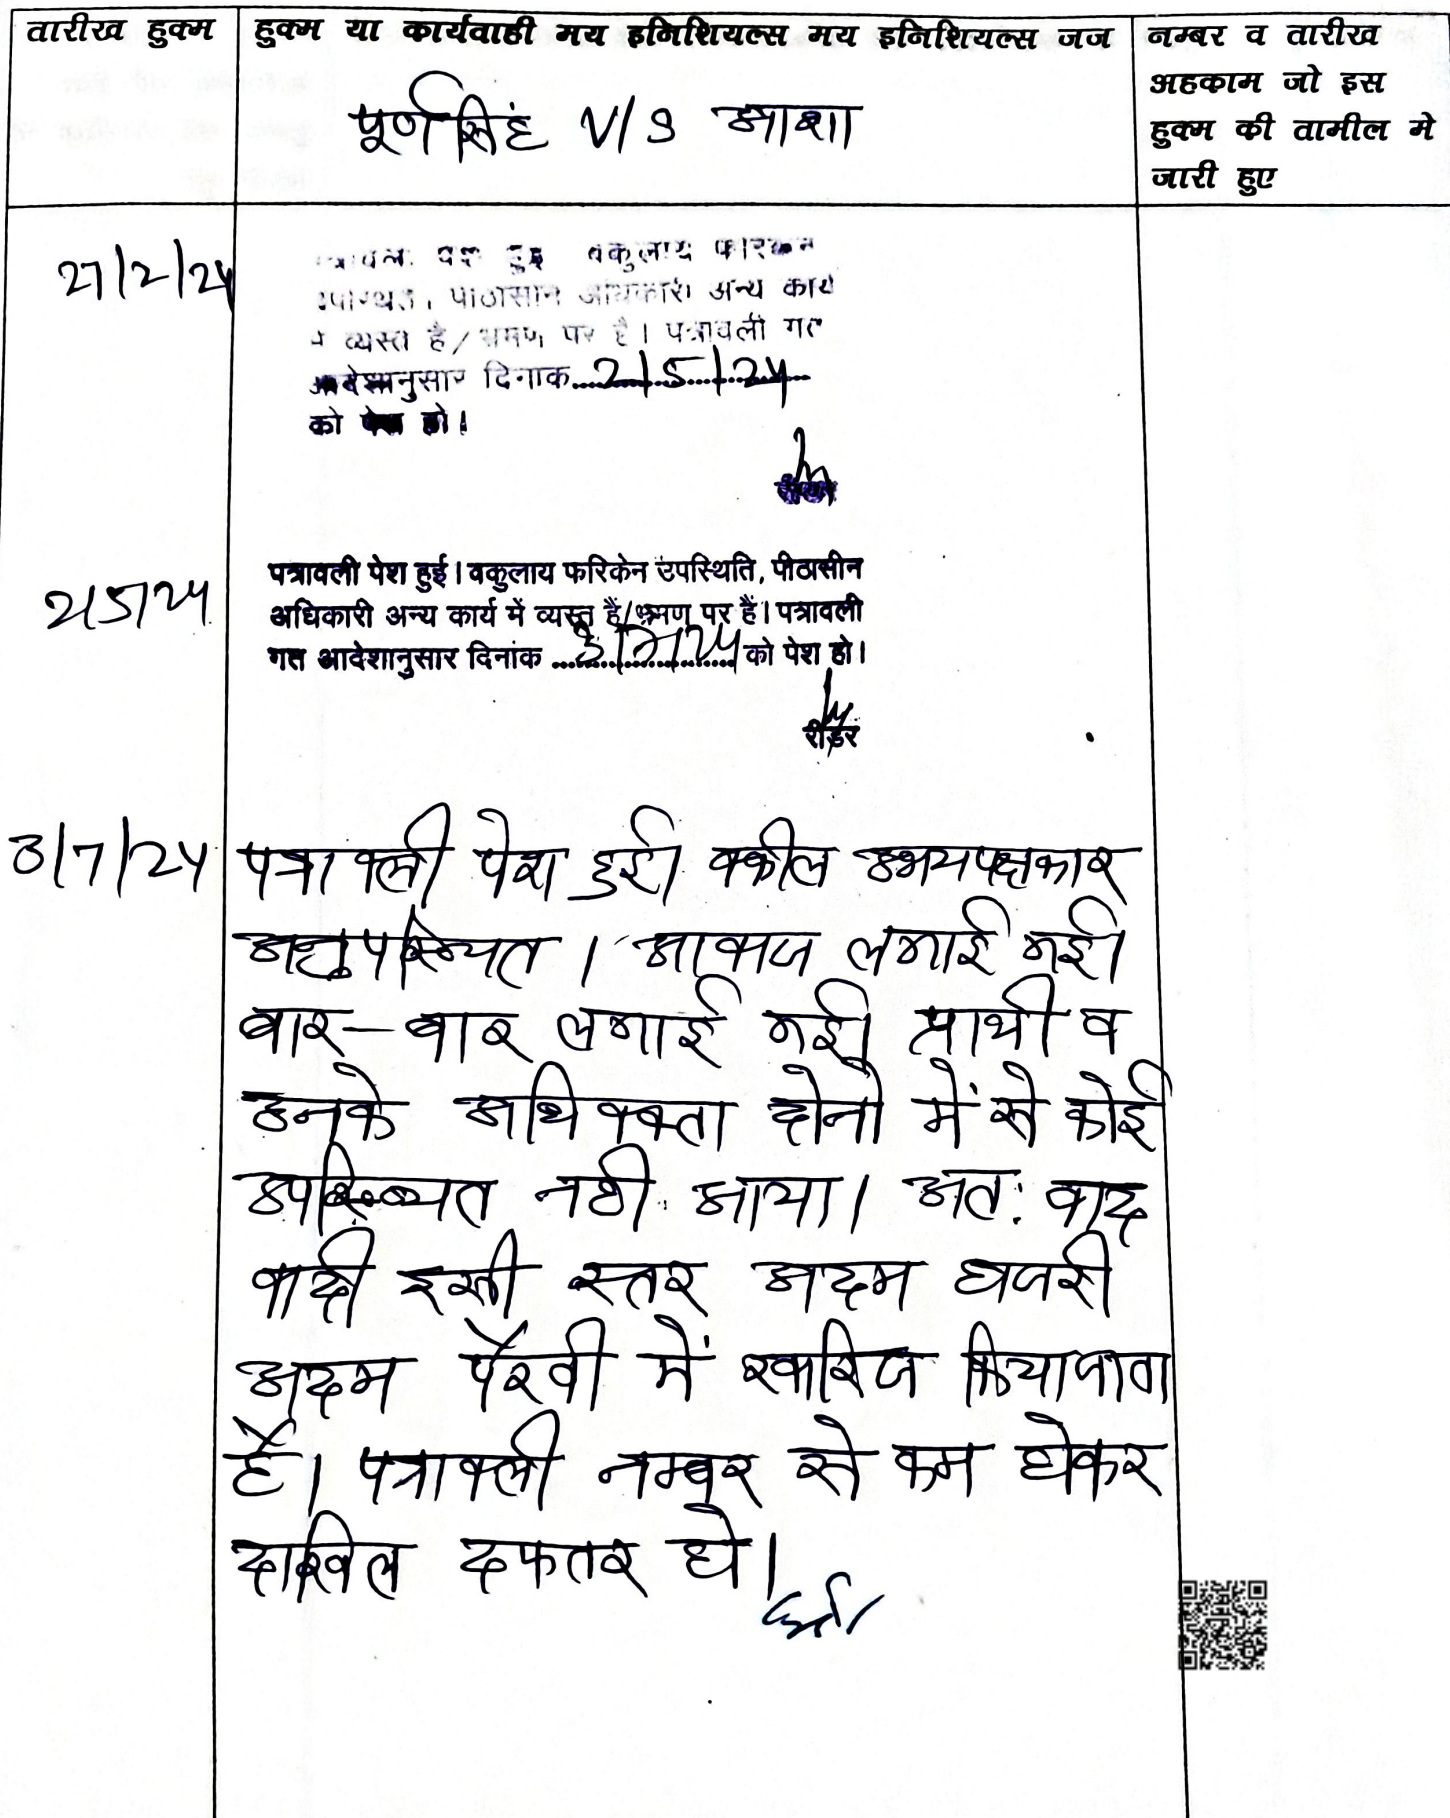 तारीख हुक्म
हुक्म या कार्यवाही मय इनिशियल्स मय इनिशियल्स जज
नम्बर व तारीख
अहकाम जो इस
हुक्म की तामील मे
जारी हुए
पूर्ण सिंह V/S आशा
27/2/24
पेश हुई वकुलाय फरिकेन
पीठासीन अधिकारी अन्य कार्य
व्यस्त है/भ्रमण पर है। पत्रावली गत
आदेशानुसार दिनाक 2/5/24
को पेश हो।
2/5/24
पत्रावली पेश हुई। वकुलाय फरिकेन उपस्थिति, पीठासीन
अधिकारी अन्य कार्य में व्यस्त हैं/भ्रमण पर हैं। पत्रावली
गत आदेशानुसार दिनांक 3/7/24 को पेश हो।
रीडर
3/7/24
पत्रावली पेश हुई। वकील उभयपक्षकार
अनुपस्थित। आवाज लगाई गई।
बार-बार लगाई गई। प्रार्थी व
उनके अधिवक्ता दोनो में से कोई
उपस्थित नही आया। अत: वाद
वादी इसी स्तर अदम हाजरी
अदम पैरवी में खारिज किया जाता
है। पत्रावली नम्बर से कम होकर
दाखिल दफतर हो।